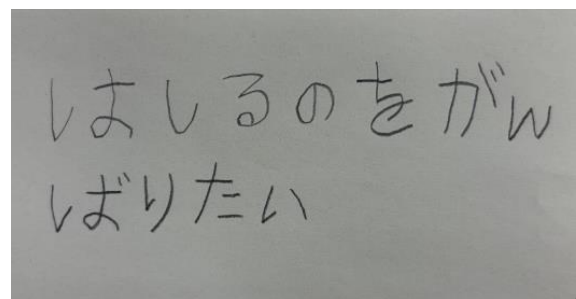 はしるのをがん
ばりたい